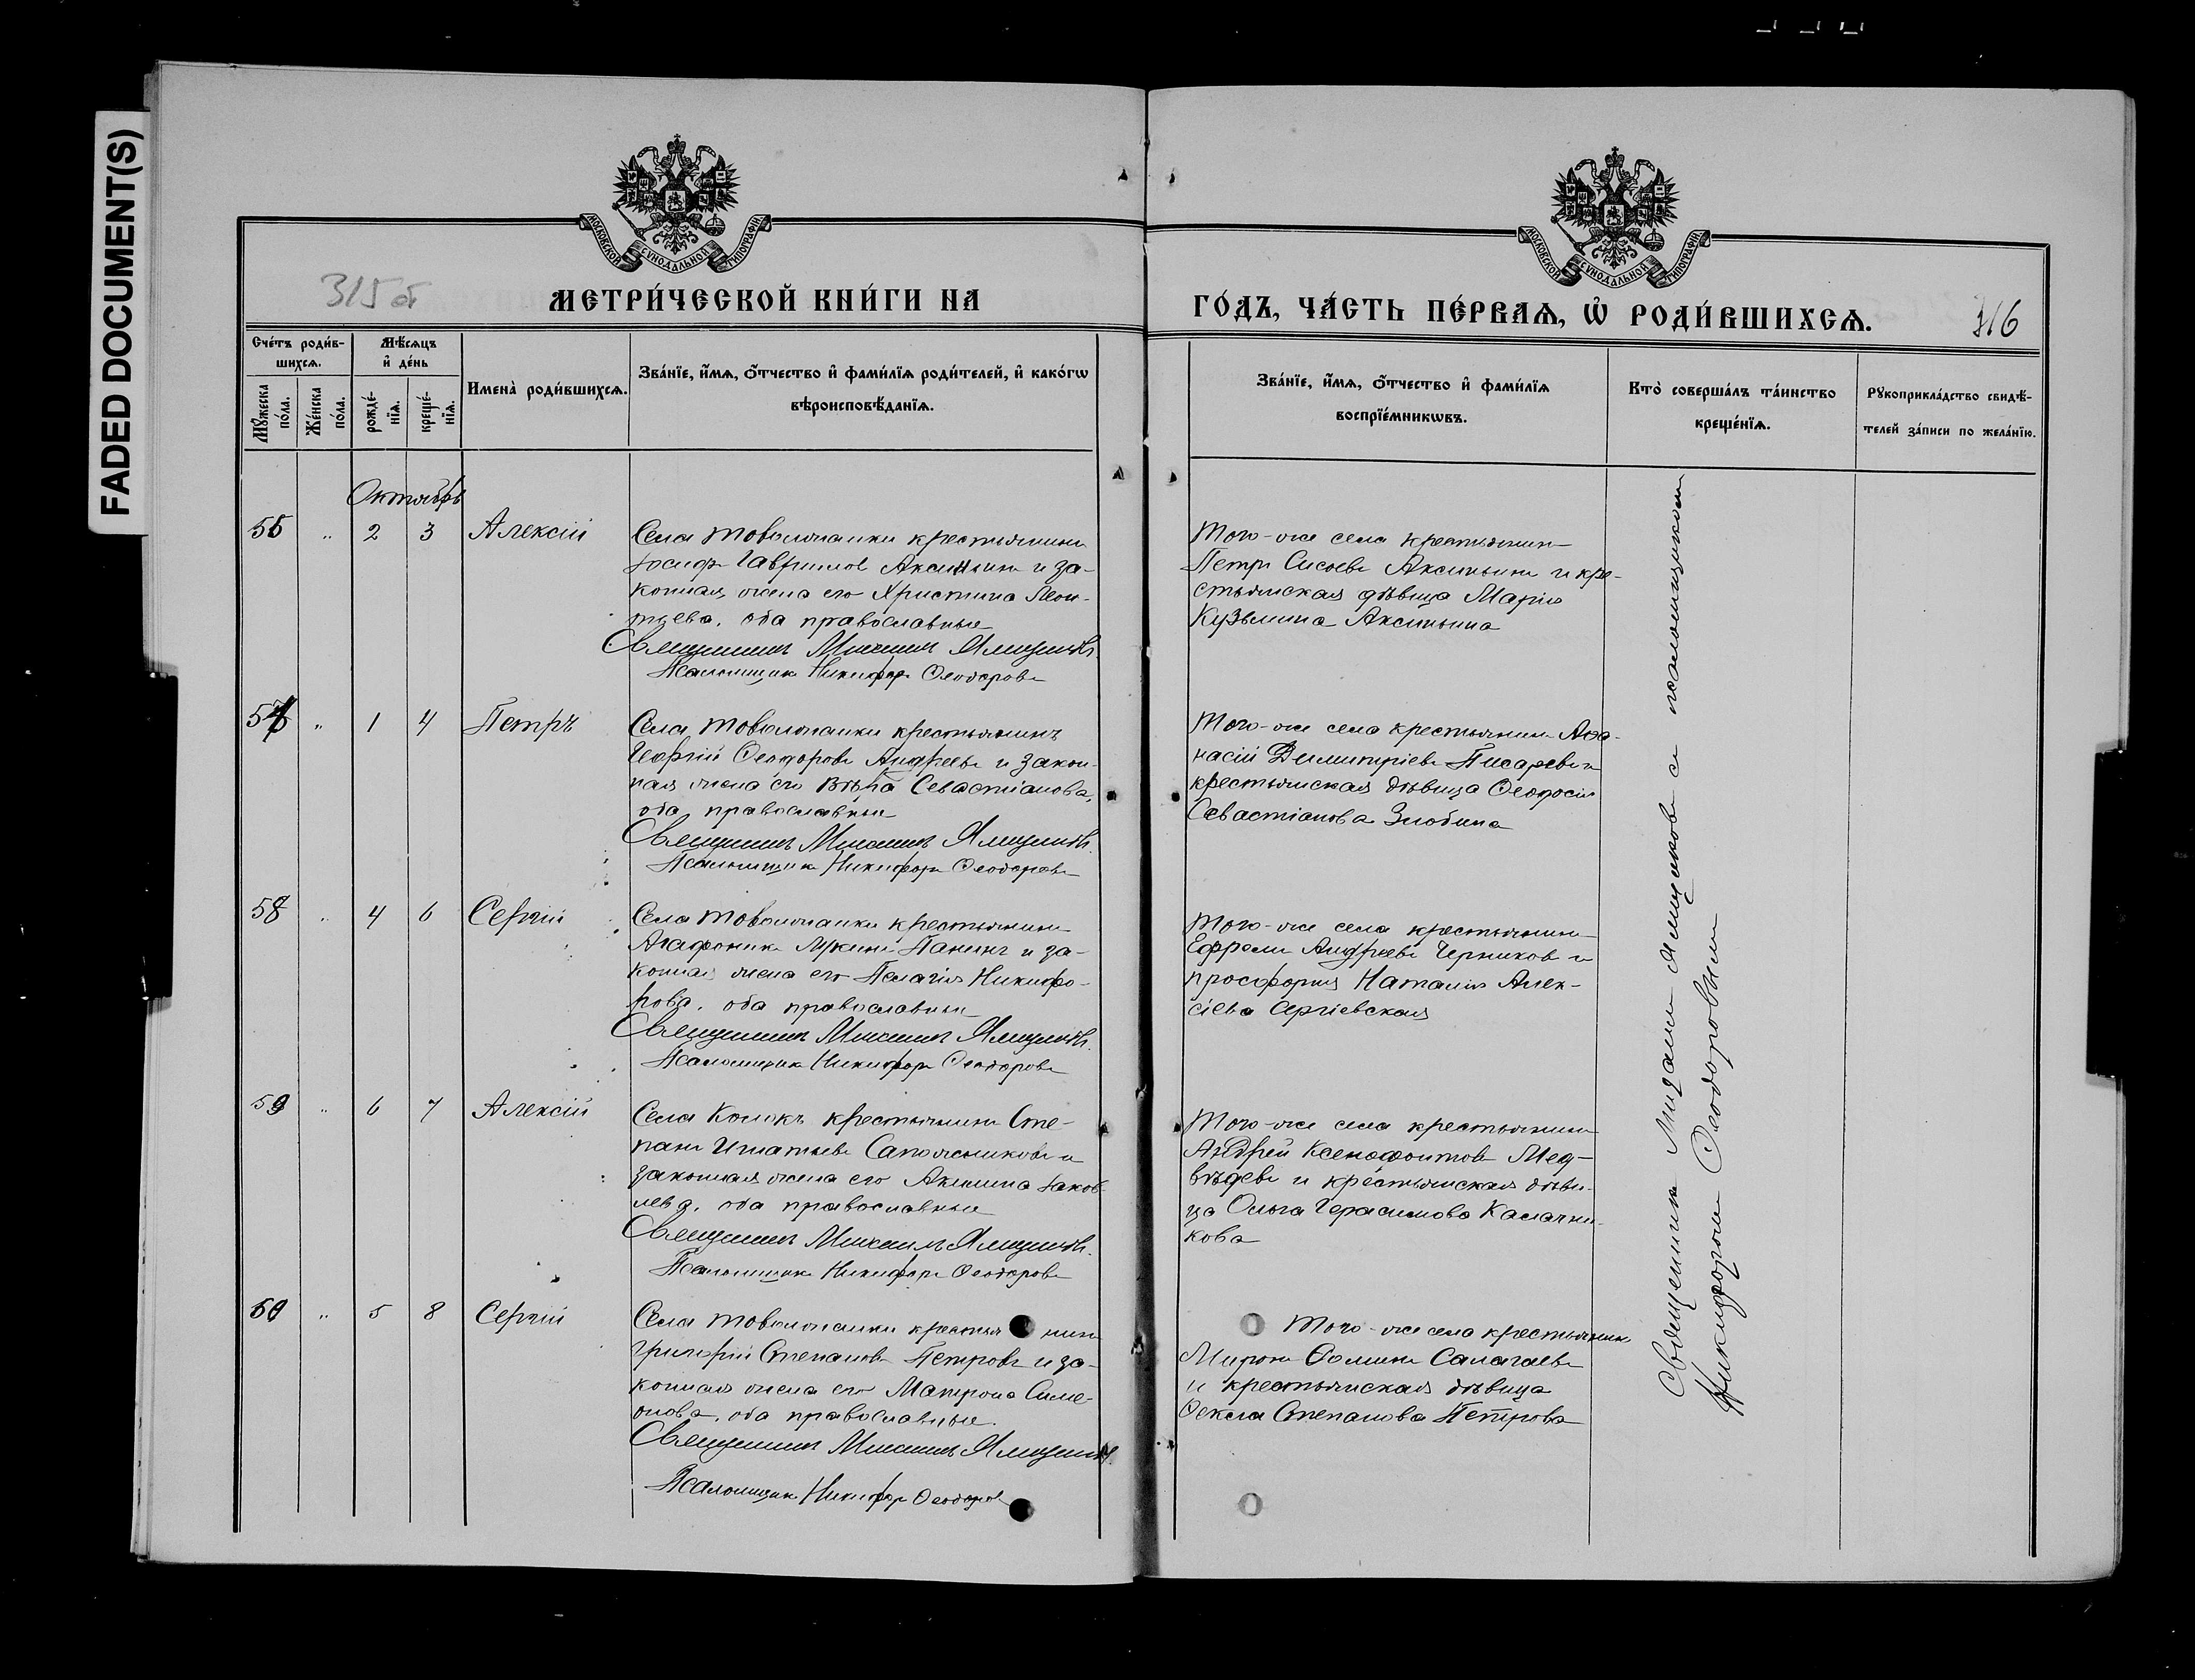 FADED DOCUMENT(S)
МОСКОВСКОЙ СѴНОДАЛЬНОЙ ТИПОГРАФІИ
МОСКОВСКОЙ СѴНОДАЛЬНОЙ ТИПОГРАФІИ
315 об
МЕТРИ́ЧЕСКОЙ КНИ́ГИ НА
ГО́ДЪ, ЧА́СТЬ ПЕ́РВАѦ, Ѡ҆ РОДИ́ВШИХСѦ.
316
Сче́тъ роди́в-
шихсѧ.
Мꙋ́жеска по́ла.
Же́нска по́ла.
Мѣ́сѧцъ
и҆ де́нь
рожде́-
нїѧ.
креще́-
нїѧ.
Имена̀ роди́вшихсѧ.
Зва́нїе, и҆́мѧ, ѻ҆́тчество и҆ фами́лїѧ роди́телей, и҆ како́гѡ
вѣроисповѣ́данїѧ.
Зва́нїе, и҆́мѧ, ѻ҆́тчество и҆ фами́лїѧ
воспрїе́мникѡвъ.
Кто̀ соверша́лъ та́инство
креще́нїѧ.
Рꙋкоприкла́дство свидѣ́-
телей за́писи по жела́нїю.
Октябрь
56 " 2 3 Алексій
Села Товолжанки крестьянинъ
Іосифъ Гавріиловъ Аксиньинъ и за-
конная жена его Христина Леон-
тьева, оба православные
Священникъ Михаилъ Ямщиковъ.
Псаломщикъ Никифоръ Ѳеодоровъ
Того-же села крестьянинъ
Петръ Сисоевъ Аксиньинъ и кре-
стьянская дѣвица Марія
Кузьмина Аксиньина
57 " 1 4 Петръ
Села Товолжанки крестьянинъ
Георгій Ѳеодоровъ Андреевъ и закон-
ная жена его Вѣра Севастіанова,
оба православные
Священникъ Михаилъ Ямщиковъ.
Псаломщикъ Никифоръ Ѳеодоровъ
Того-же села крестьянинъ Аѳа-
насій Димитріевъ Писаревъ и
крестьянская дѣвица Ѳеодосія
Севастіанова Злобина
58 " 4 6 Сергій
Села Товолжанки крестьянинъ
Агафоникъ Лукинъ Панинъ и за-
конная жена его Пелагія Никифо-
рова, оба православные
Священникъ Михаилъ Ямщиковъ.
Псаломщикъ Никифоръ Ѳеодоровъ
Того-же села крестьянинъ
Ефремъ Андреевъ Черниковъ и
просфорня Наталія Алек-
сіева Сергіевская
59 " 6 7 Алексій
Села Колокъ крестьянинъ Сте-
панъ Игнатьевъ Сапожниковъ и
законная жена его Акилина Іаков-
лева, оба православные
Священникъ Михаилъ Ямщиковъ.
Псаломщикъ Никифоръ Ѳеодоровъ
Того-же села крестьянинъ
Андрей Ксенофонтовъ Мед-
вѣдевъ и крестьянская дѣви-
ца Ольга Герасимова Калачни-
кова
60 " 5 8 Сергій
Села Товолжанки крестьянинъ
Григорій Степановъ Петровъ и за-
конная жена его Матрона Симе-
онова, оба православные.
Священникъ Михаилъ Ямщиковъ.
Псаломщикъ Никифоръ Ѳеодоровъ
Того-же села крестьянинъ
Миронъ Ѳоминъ Салагаевъ
и крестьянская дѣвица
Ѳекла Степанова Петрова
Священникъ Михаилъ Ямщиковъ съ псаломщикомъ
Никифоромъ Ѳеодоровымъ